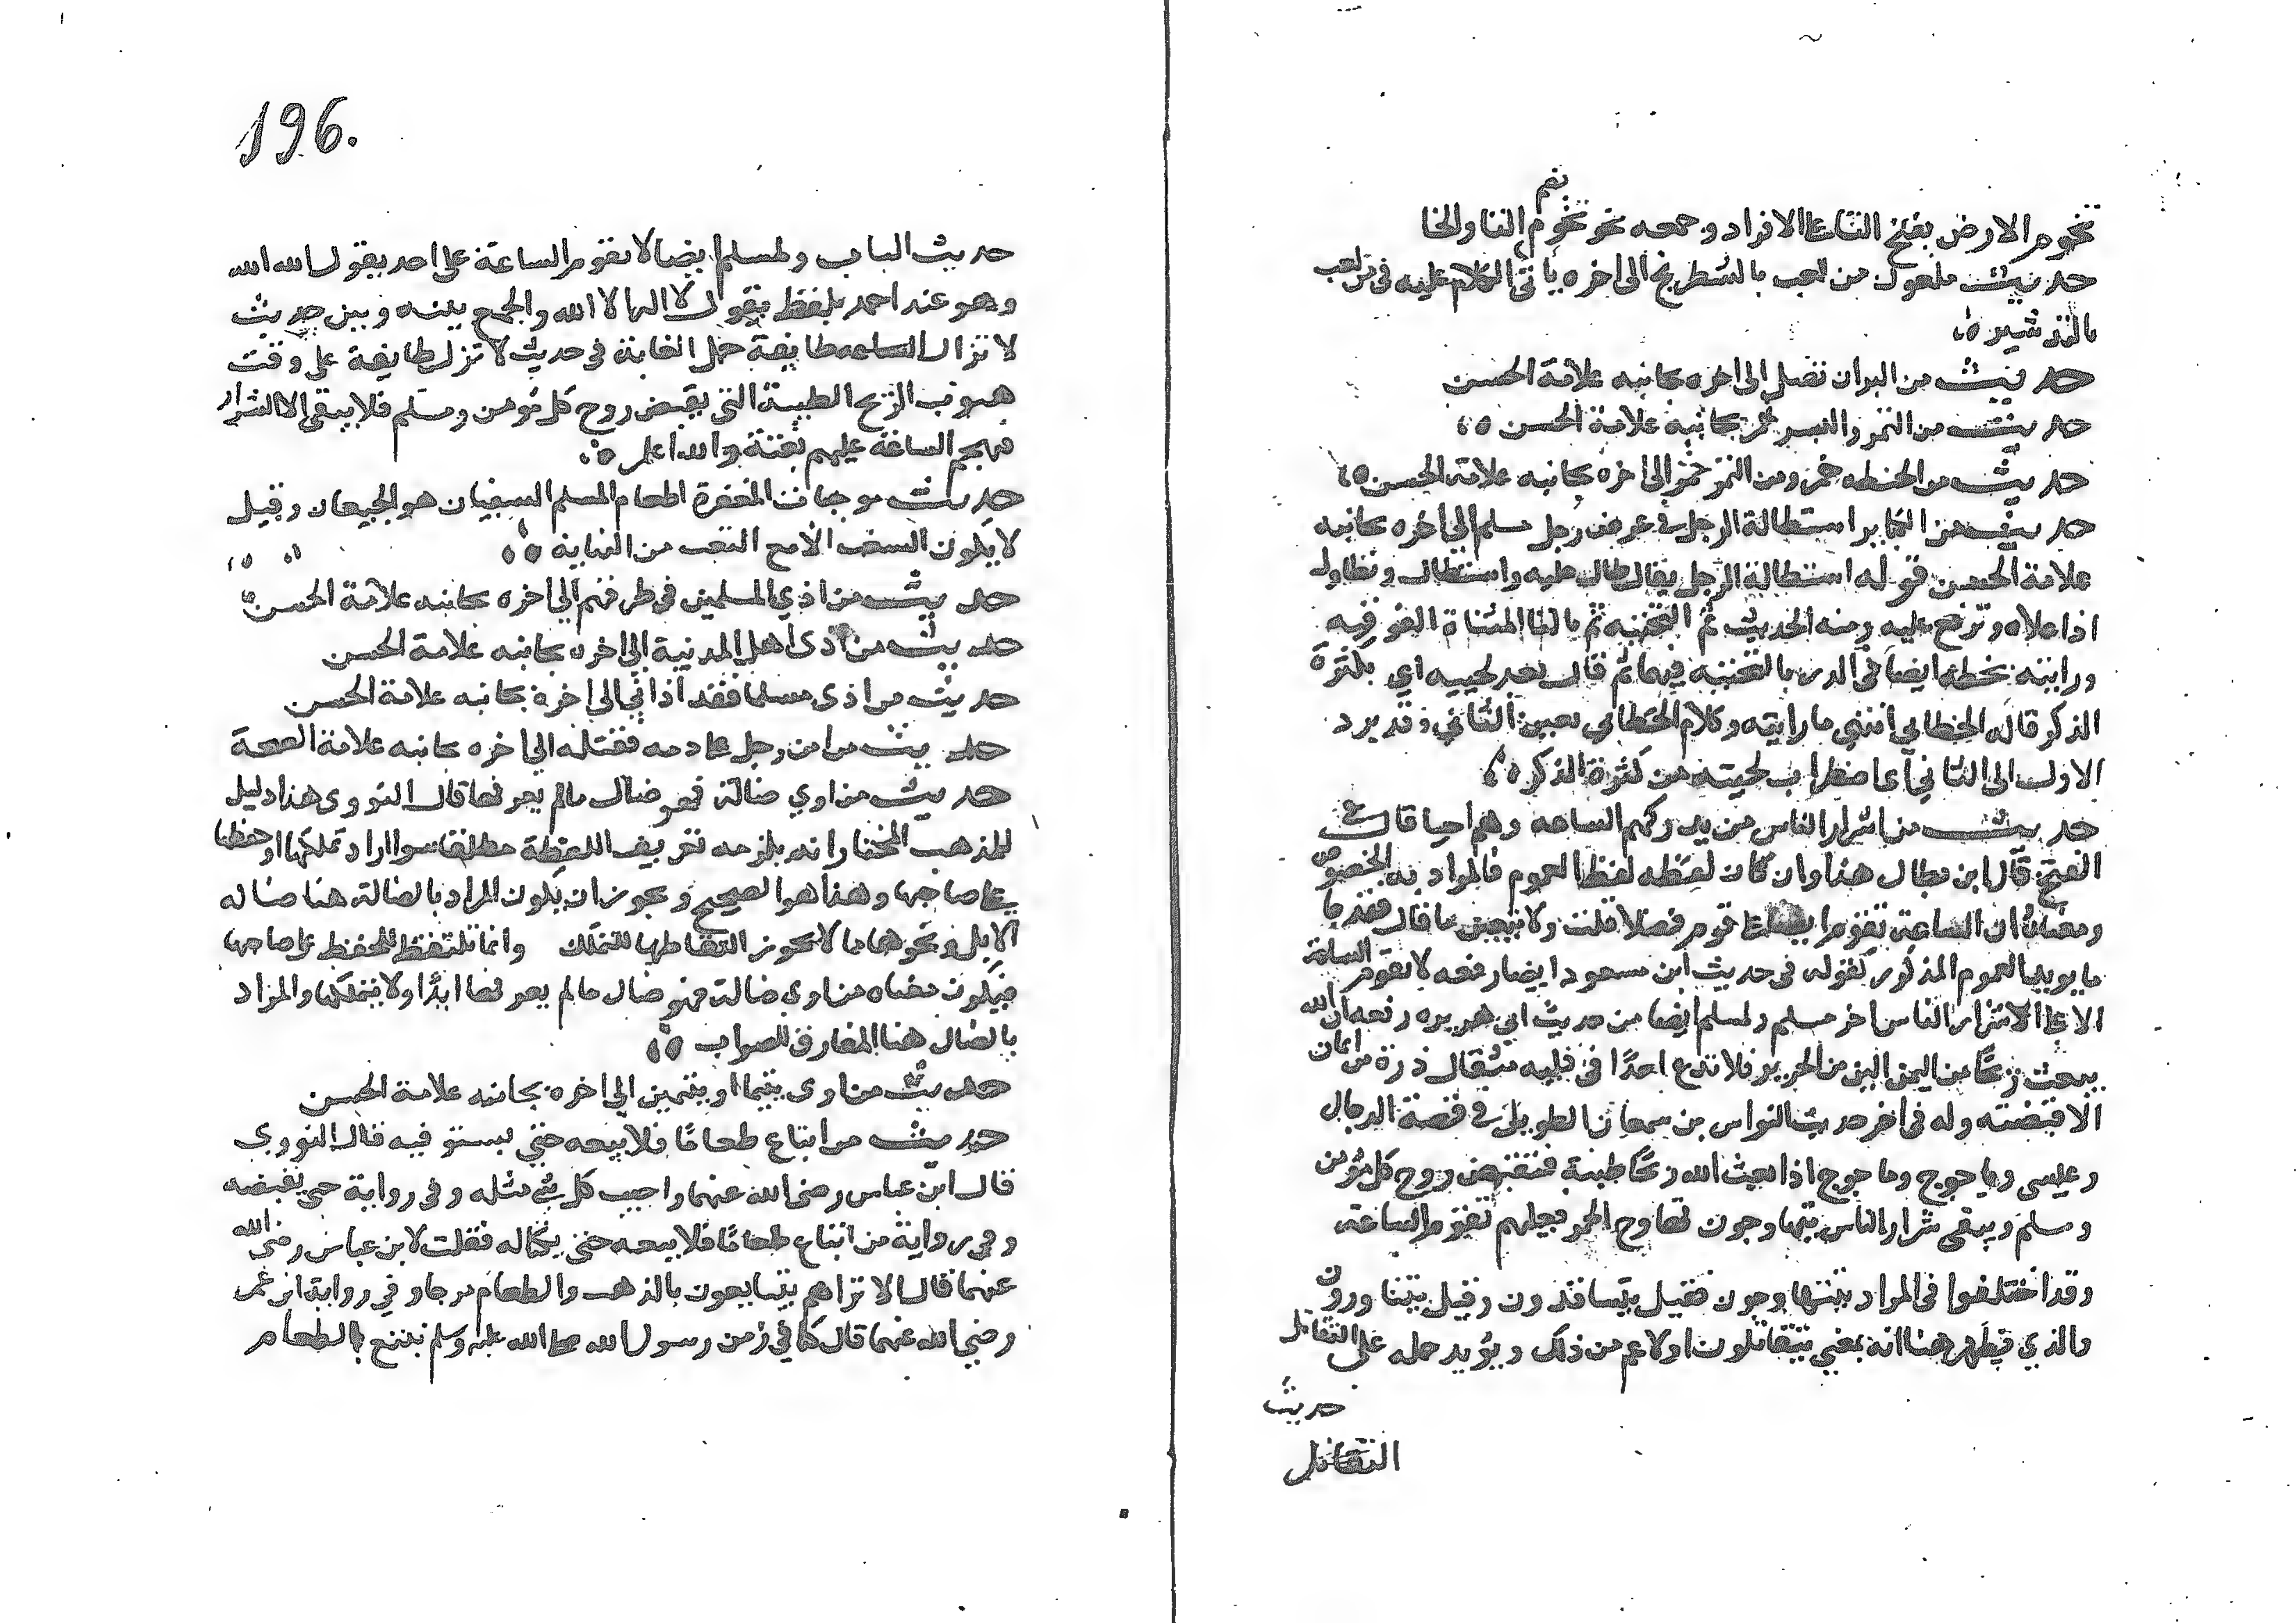 تخوم الارض بفتح التا على الافراد وجمعه نحو تخوم بضم التا والخا
حديث ملعون من لعب بالشطرنج الى اخره ياتى الكلام عليه فى من لعب
بالنردشير ه
حديث من البر ان تصل الى اخره بجانبه علامة الحسن
حديث من التمر والبسر خمر بجانبه علامة الحسن ه
حديث من الحنطه خمر ومن التمر خمر الى اخره بجانبه علامة الحسن ه
حديث من الكباير استطالة الرجل فى عرض رجل مسلم الى اخره بجانبه
علامة الحسن قوله استطالة الرجل يقال طال عليه واستطال وتطاول
اذا علاه وترفع عليه ومنه الحديث ثم التحتيه ثم بالتا المثناة الفوقيه
ورايته بخطه ايضا فى الدر بالتحتيه فيهما ثم قال بعد لحييه اى بكثرة
الذكر قاله الخطابي انتهى ما رايته وكلام الخطابي يعين الثاني وقد يرد
الاول الى الثاني اى اضطراب لحيته من كثرة الذكر ه
حديث من اشرار الناس من تدركهم الساعه وهم احيا قال فى
الفتح قال ابن بطال هذا وان كان لفظه لفظ العموم فالمراد به الخصوص
ومعناه ان الساعة تقوم ايضا على قوم فضلا قلت ولا يتعين ما قال فقد جا
ما يويد العموم المذكور كقوله فى حديث ابن مسعود ايضا رفعه لا تقوم الساعة
الا على الاشرار الناس اخرمسلم ولمسلم ايضا من حديث ابي هريره رفعه ان الله
يبعث ريحا من اليمن الين من الحرير فلا تدع احدا فى قلبه مثقال ذرة من ايمان
الا قبضته وله فى اخر حديث النواس بن سمعان الطويل فى قصة الدجال
وعيسى وياجوج وماجوج اذا بعث الله ريحا طيبة فتقبض روح كل مؤمن
ومسلم ويبقى شرار الناس يتهارجون تهارج الحمر فعليهم تقوم الساعة
وقد اختلفوا فى المراد بيتهارجون فقيل يتسافدون وقيل يتثاورون
والذي يظهر هنا انه بمعنى يتقاتلون او لاعم من ذلك ويؤيد حمله على التقاتل
حديث
التقاتل
196.
حديث الباب ولمسلم ايضا لا تقوم الساعة على احد يقول الله الله
وهو عند احمد بلفظ يقول لا اله الا الله والجمع بينه وبين حديث
لا تزال طايفة حمل الغاية فى حديث لا تزال طايفة على وقت
هبوب الريح الطيبة التى تقبض روح كل مؤمن ومسلم فلا يبقى الا الشرار
فتهجم الساعة عليهم بغتة والله اعلم ه
حديث موجبات المغفرة اطعام المسلم السغبان هو الجيعان وقيل
لا يكون السغب الا مع التعب من النهاية ه
حديث من اذي المسلمين فى طرقهم الى اخره بجانبه علامة الحسن
حديث من اذى اهل المدينة الى اخره بجانبه علامة الحسن
حديث من اذى مسلما فقد اذاني الى اخره بجانبه علامة الحسن
حديث من امن رجل على دمه فقتله الى اخره بجانبه علامة الصحة
حديث من اوي ضالة فهو ضال مالم يعرفها قال النووى هذا دليل
للمذهب المختار انه يلزمه تعريف اللقطة مطلقا سوا اراد تملكها او حفظها
على صاحبها وهذا هو الصحيح ويجوز ان يكون المراد بالضالة هنا ضاله
الابل ونحوها مما لا يجوز التقاطها للتملك وانما تلتقط للحفظ على صاحبها
فيكون معناه من اوى ضالة فهو ضال مالم يعرفها ابدا ولا يتملكها والمراد
بالضال هنا المفارق للصواب ه
حديث من اوى يتيما او يتيمين الى اخره بجانبه علامة الحسن
حديث من ابتاع طعاما فلا يبعه حتى يستوفيه قال النووى
قال ابن عباس رضى الله عنهما واحسب كل شى مثله وفى رواية حتى يقبضه
وفى رواية من ابتاع طعاما فلا يبعه حتى يكتاله فقلت لابن عباس رضى الله
عنهما قال الا تراهم يتبايعون بالذهب والطعام مرجا وفي رواية ابن عمر
رضي الله عنهما قال كنا في زمن رسول الله صلى الله عليه وسلم نبتاع الطعام